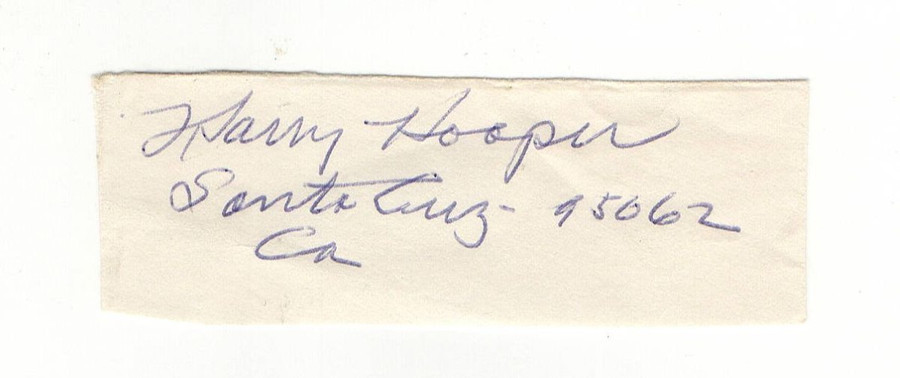 Harry Hooper
Santa Cruz 95062
Ca